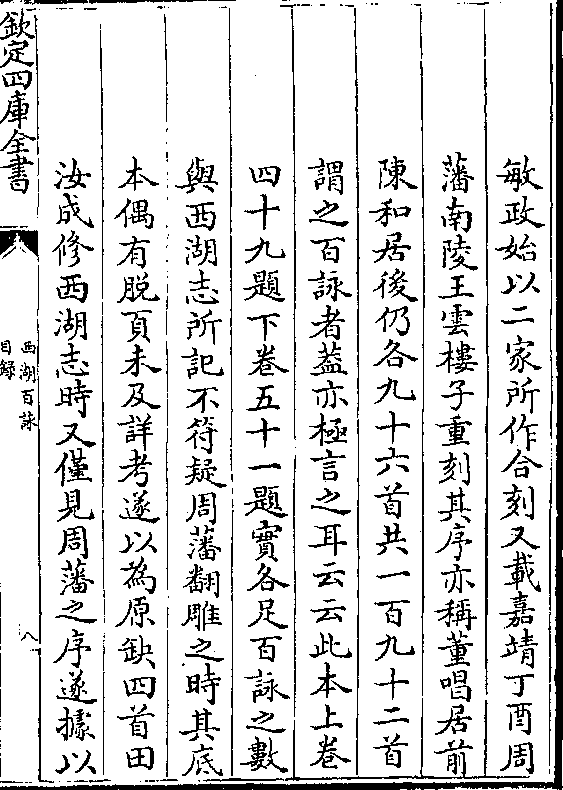 敏政始以二家所作合刻又載嘉靖丁酉周
藩南陵王雲樓子重刻其序亦稱董唱居前
陳和居後仍各九十六首共一百九十二首
謂之百詠者葢亦極言之耳云云此本上卷
四十九題下卷五十一題實各足百詠之數
與西湖志所記不符疑周藩翻雕之時其底
本偶有脱頁未及詳考遂以為原缺四首田
汝成修西湖志時又僅見周藩之序遂據以
欽定四庫全書
西湖百詠
目録
八